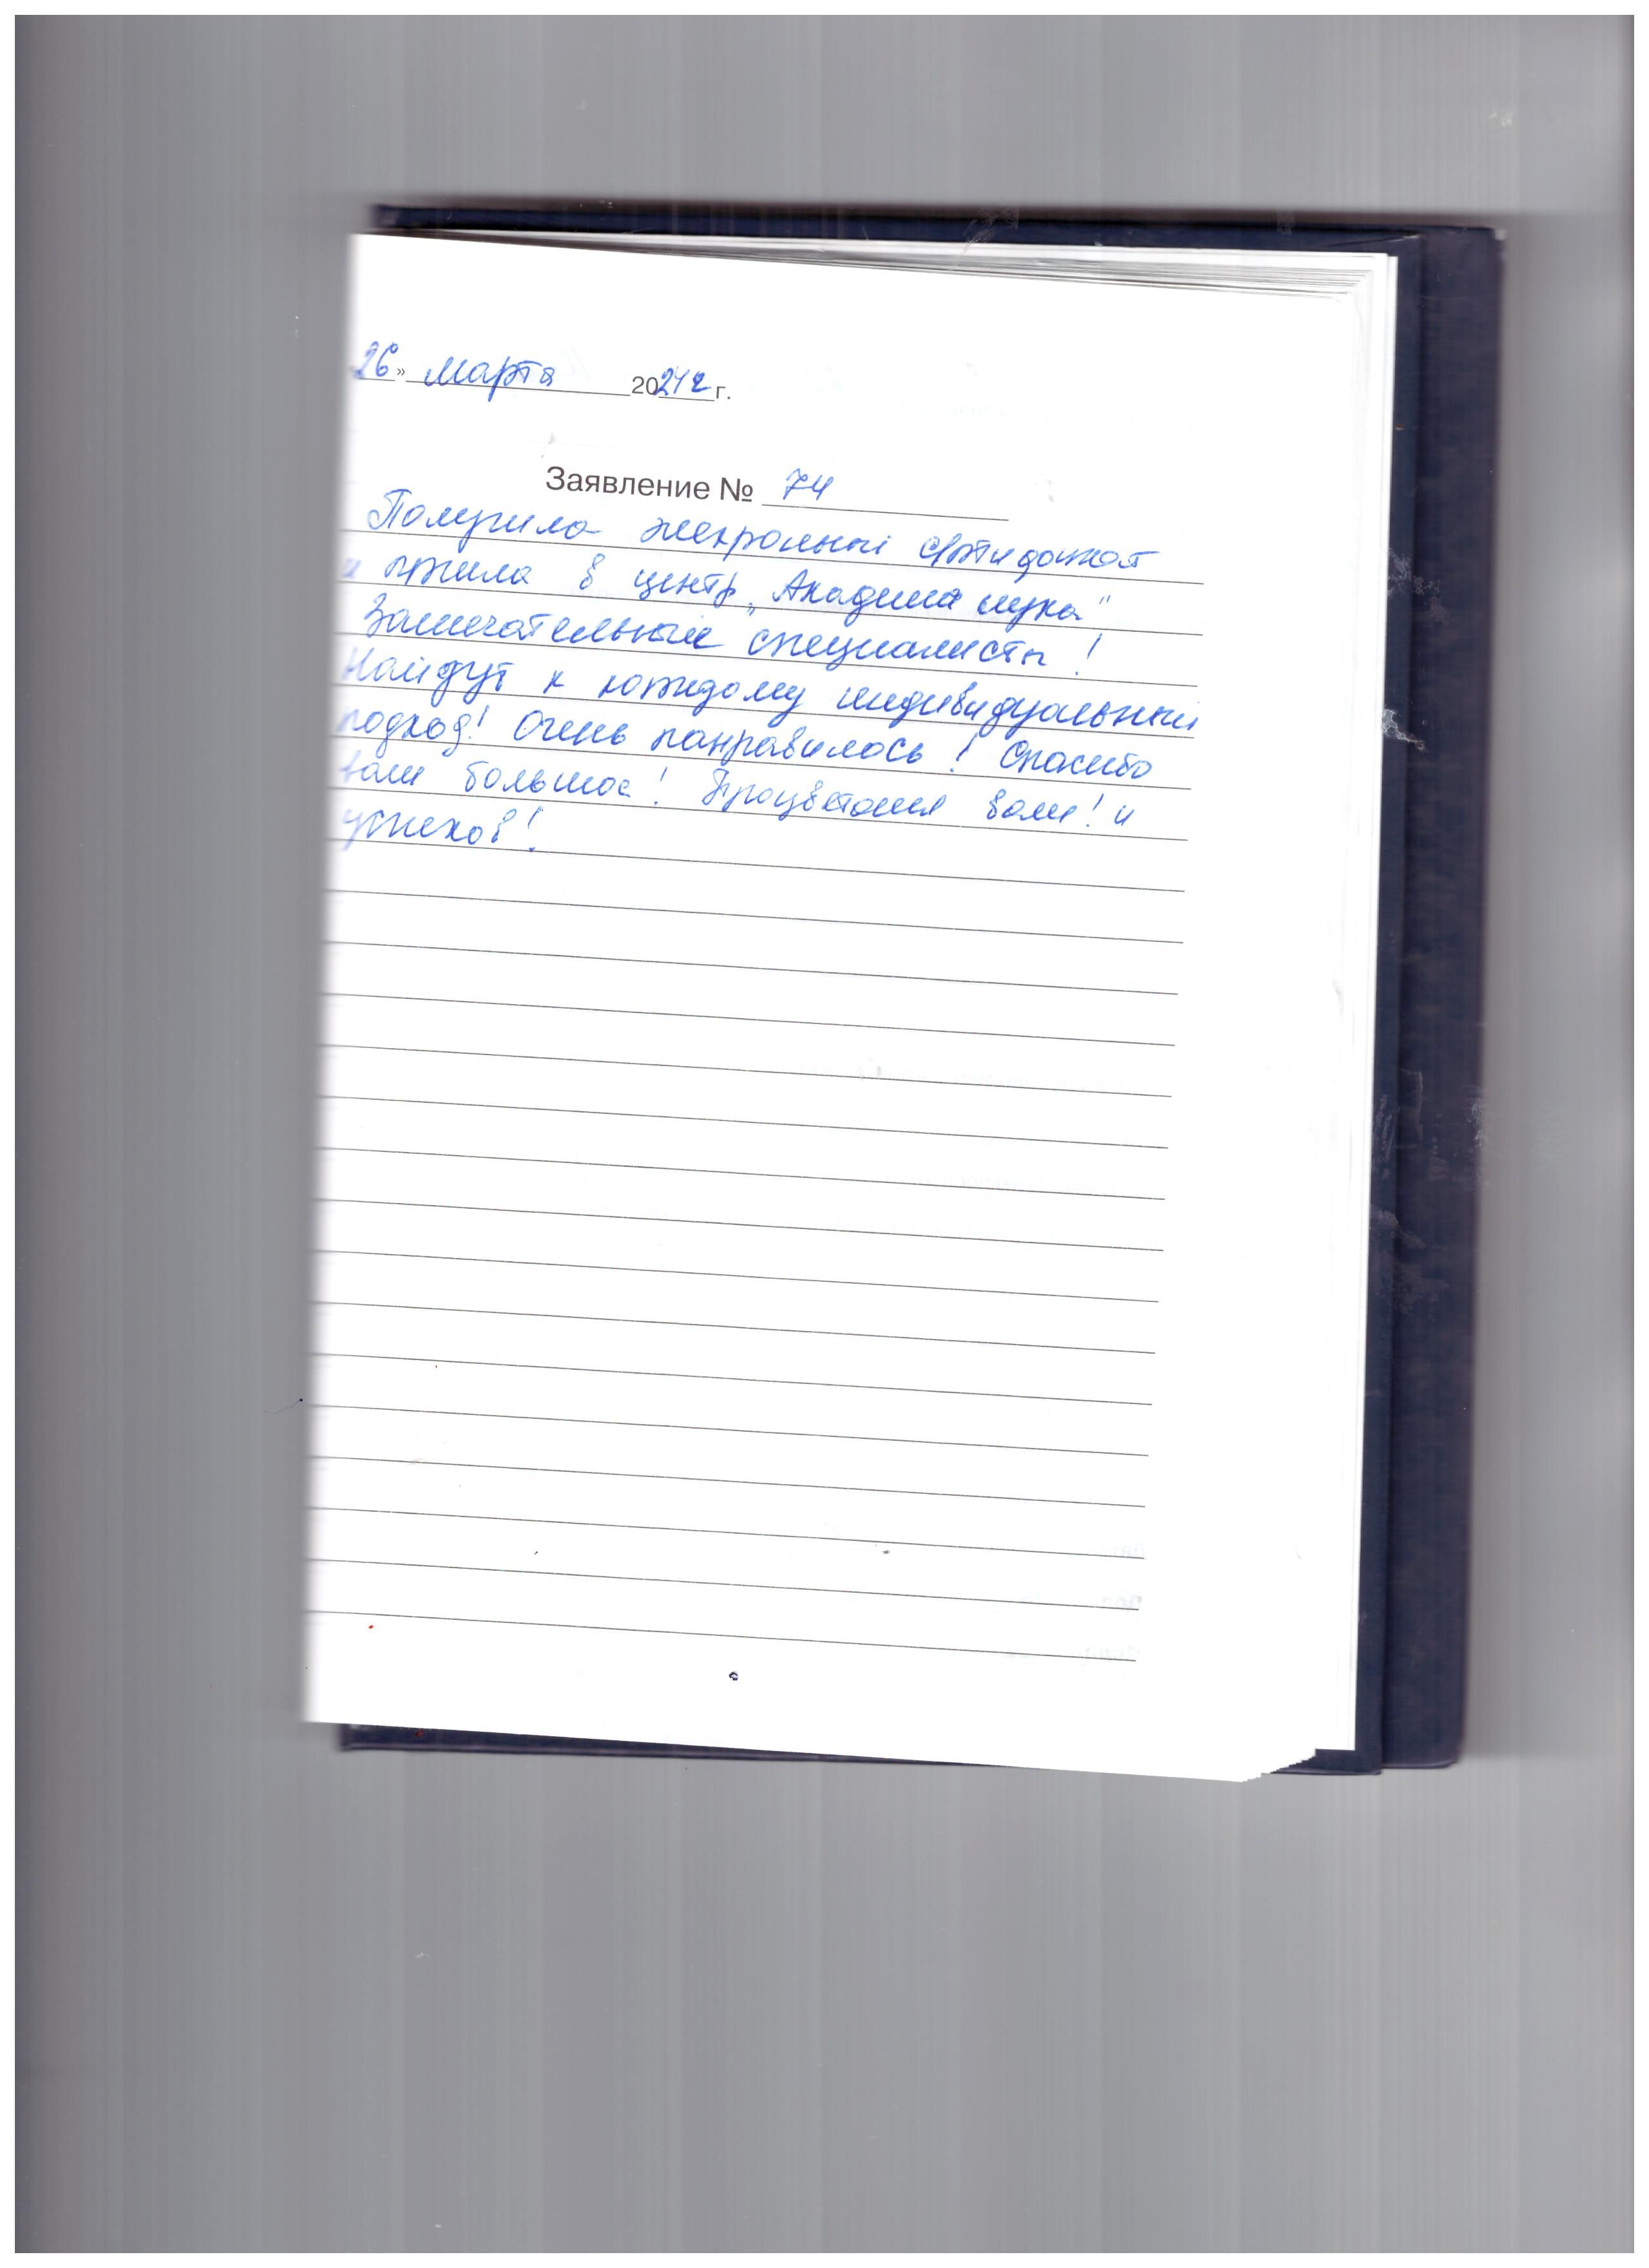 26» марта 2024г г.
Заявление № 74
Получила электроный сертификат
и пришла в центр „Академия слуха"
Замечательные специалисты!
Найдут к каждому индивидуальный
подход! Очень понравилось! Спасибо
вам большое! Процветания вам! и
успехов!